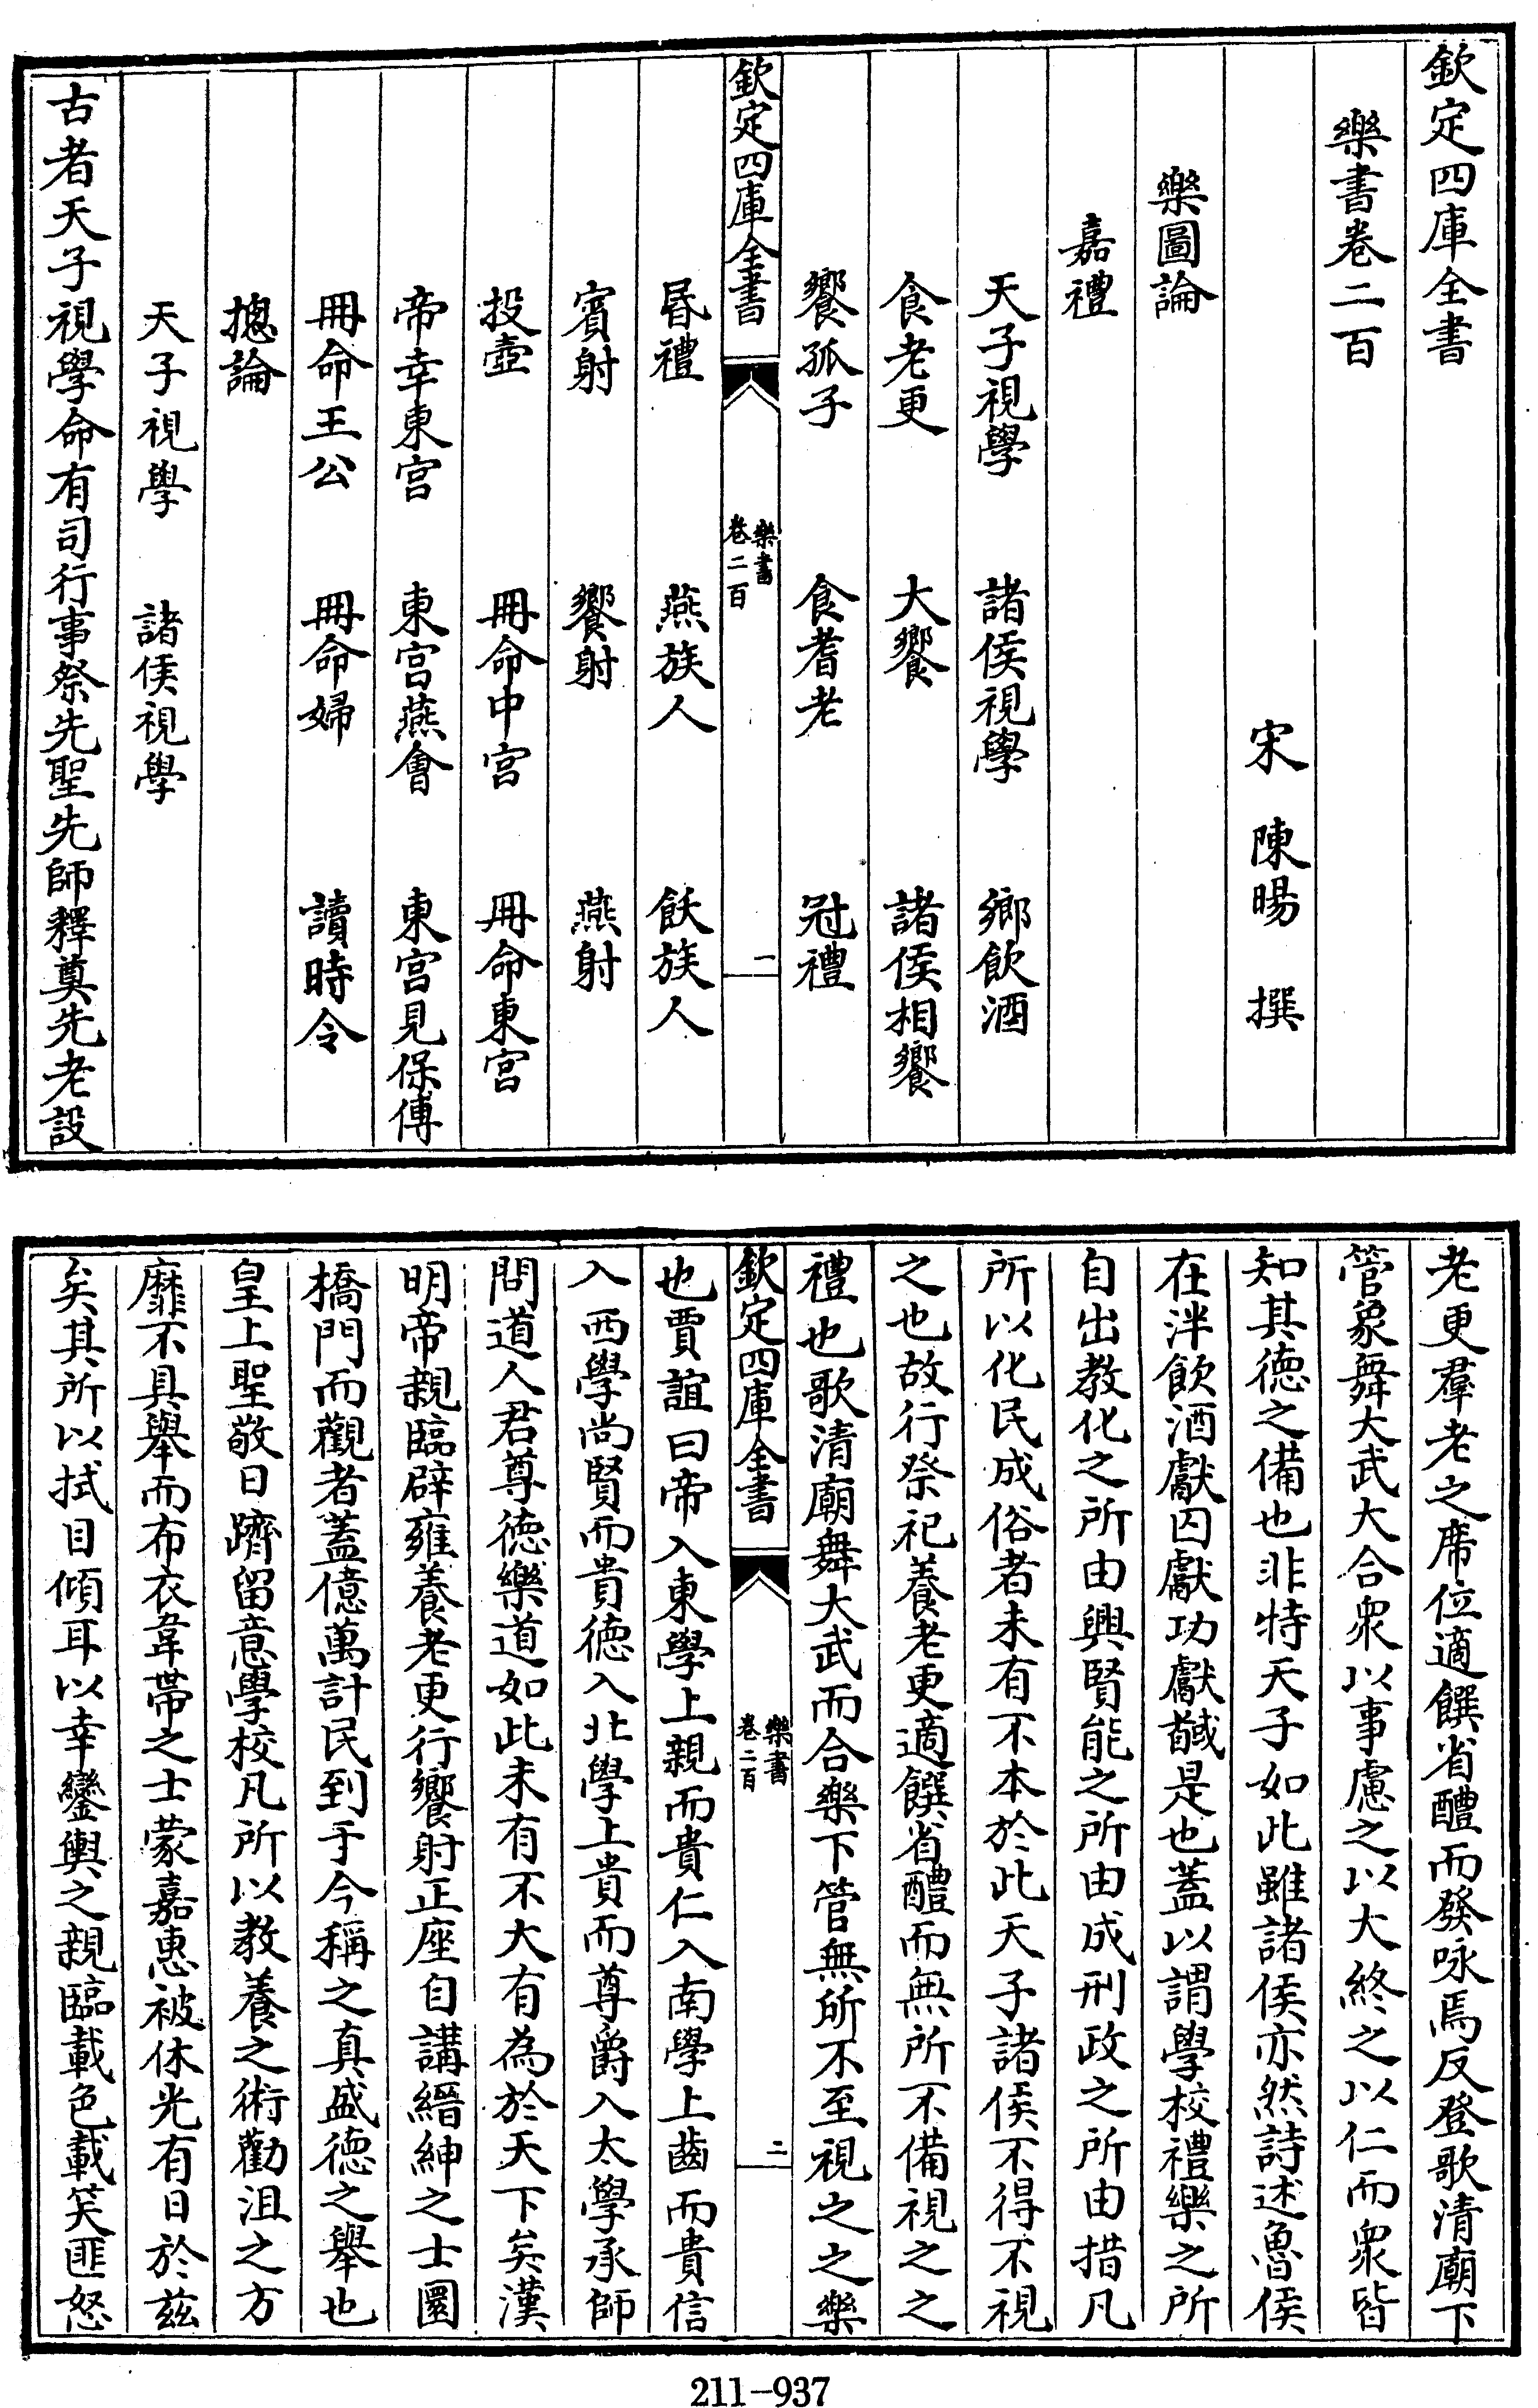 欽定四庫全書
樂書卷二百
宋 陳暘 撰
樂圖論
嘉禮
天子視學 諸侯視學 鄉飲酒
食老更 大饗 諸侯相饗
饗孤子 食耆老 冠禮
欽定四庫全書 樂書卷二百 一
昬禮 燕族人 飫族人
賓射 饗射 燕射
投壺 冊命中宮 冊命東宮
帝幸東宮 東宮燕會 東宮見保傅
冊命王公 冊命婦 讀時令
摠論
天子視學 諸侯視學
古者天子視學命有司行事祭先聖先師釋奠先老設
老更羣老之席位適饌省醴而發咏焉反登歌清廟下
管象舞大武大合衆以事慮之以大終之以仁而衆皆
知其徳之備也非特天子如此雖諸侯亦然詩述魯侯
在泮飲酒獻囚獻功獻馘是也蓋以謂學校禮樂之所
自出教化之所由興賢能之所由成刑政之所由措凡
所以化民成俗者未有不本於此天子諸侯不得不視
之也故行祭祀養老更適饌省醴而無所不備視之之
禮也歌清廟舞大武而合樂下管無所不至視之之樂
欽定四庫全書 樂書卷二百 二
也賈誼曰帝入東學上親而貴仁入南學上齒而貴信
入西學尚賢而貴徳入北學上貴而尊爵入太學承師
問道人君尊徳樂道如此未有不大有為於天下矣漢
明帝親臨辟雍養老更行饗射正座自講縉紳之士圜
橋門而觀者蓋億萬計民到于今稱之真盛徳之舉也
皇上聖敬日躋留意學校凡所以教養之術勸沮之方
靡不具舉而布衣韋帶之士蒙嘉惠被休光有日於兹
矣其所以拭目傾耳以幸鑾輿之親臨載色載笑匪怒
211-937